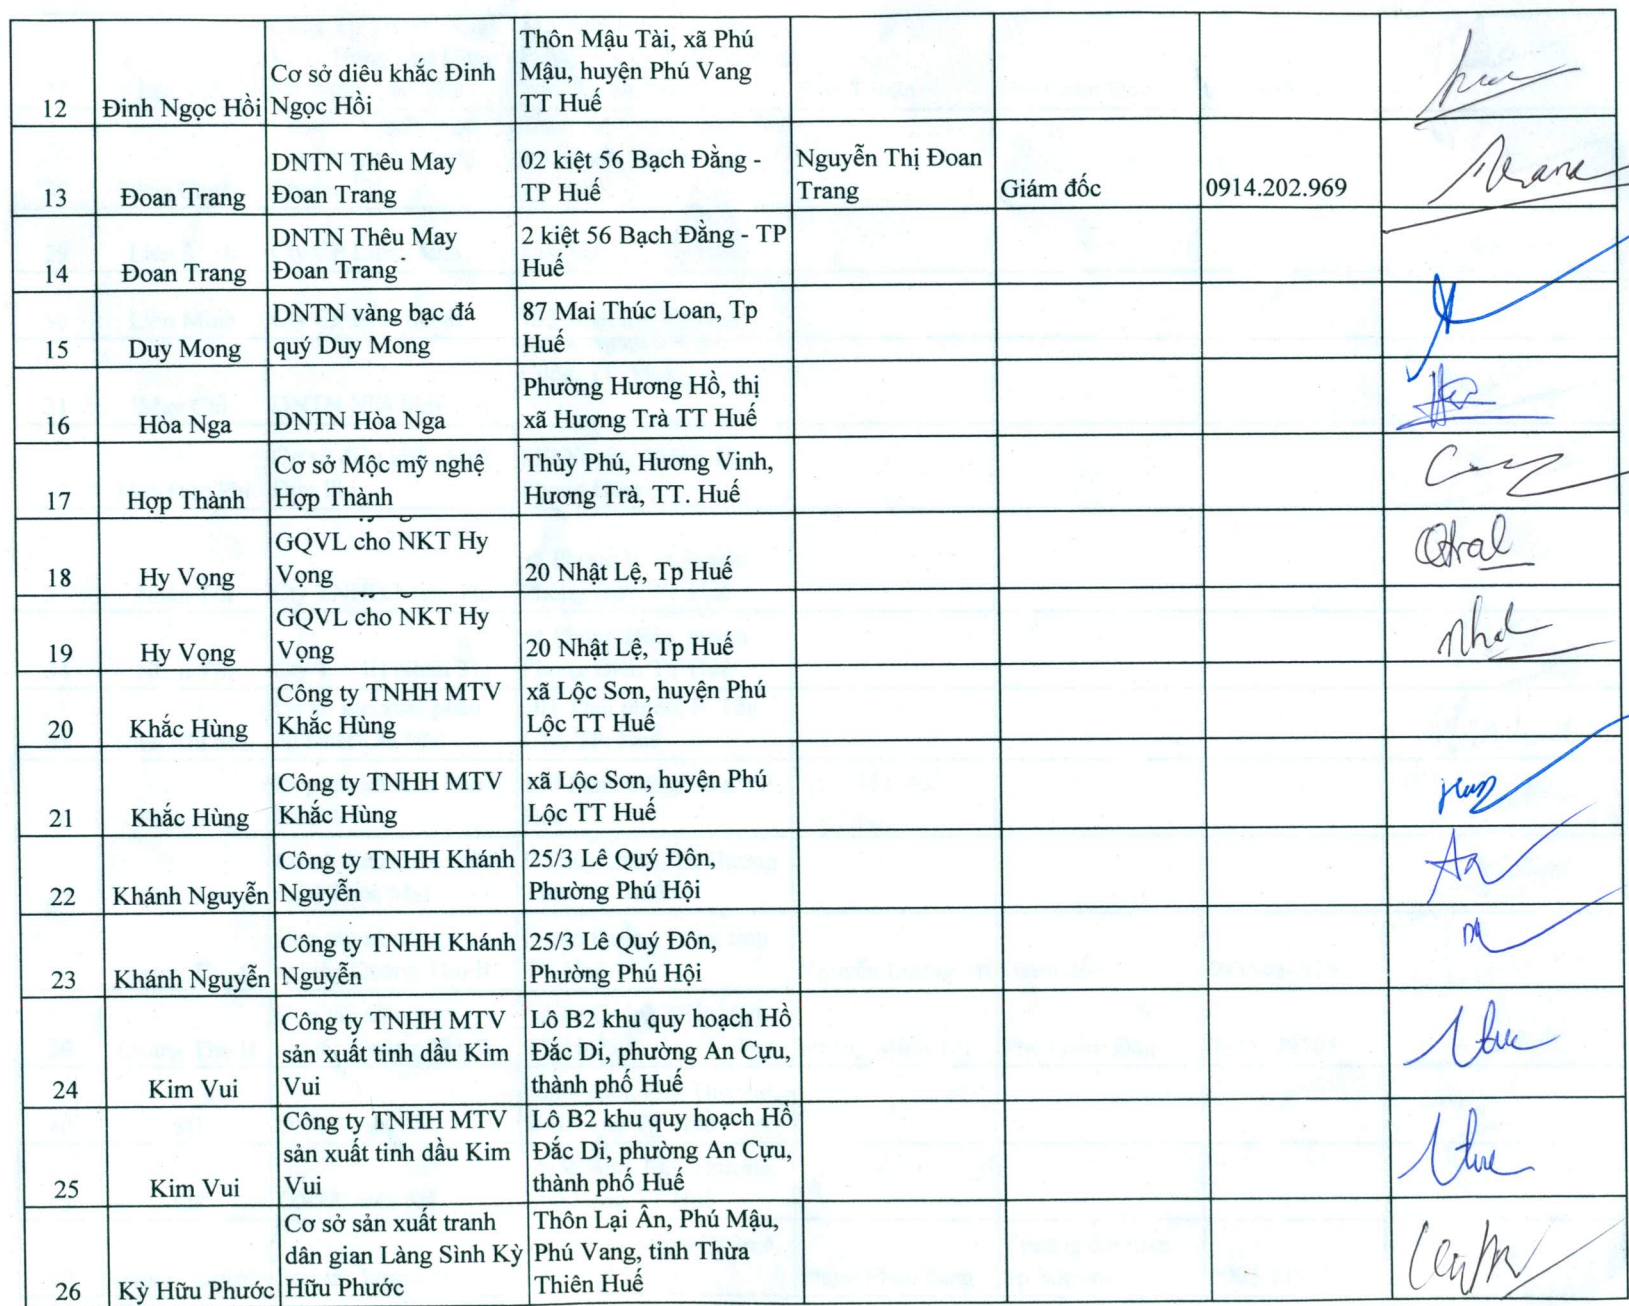 12 Đinh Ngọc Hồi Cơ sở điêu khắc Đinh Ngọc Hồi Thôn Mậu Tài, xã Phú Mậu, huyện Phú Vang TT Huế
13 Đoan Trang DNTN Thêu May Đoan Trang 02 kiệt 56 Bạch Đằng - TP Huế Nguyễn Thị Đoan Trang Giám đốc 0914.202.969
14 Đoan Trang DNTN Thêu May Đoan Trang 2 kiệt 56 Bạch Đằng - TP Huế
15 Duy Mong DNTN vàng bạc đá quý Duy Mong 87 Mai Thúc Loan, Tp Huế
16 Hòa Nga DNTN Hòa Nga Phường Hương Hồ, thị xã Hương Trà TT Huế
17 Hợp Thành Cơ sở Mộc mỹ nghệ Hợp Thành Thủy Phú, Hương Vinh, Hương Trà, TT. Huế
18 Hy Vọng GQVL cho NKT Hy Vọng 20 Nhật Lệ, Tp Huế
19 Hy Vọng GQVL cho NKT Hy Vọng 20 Nhật Lệ, Tp Huế
20 Khắc Hùng Công ty TNHH MTV Khắc Hùng xã Lộc Sơn, huyện Phú Lộc TT Huế
21 Khắc Hùng Công ty TNHH MTV Khắc Hùng xã Lộc Sơn, huyện Phú Lộc TT Huế
22 Khánh Nguyễn Công ty TNHH Khánh Nguyễn 25/3 Lê Quý Đôn, Phường Phú Hội
23 Khánh Nguyễn Công ty TNHH Khánh Nguyễn 25/3 Lê Quý Đôn, Phường Phú Hội
24 Kim Vui Công ty TNHH MTV sản xuất tinh dầu Kim Vui Lô B2 khu quy hoạch Hồ Đắc Di, phường An Cựu, thành phố Huế
25 Kim Vui Công ty TNHH MTV sản xuất tinh dầu Kim Vui Lô B2 khu quy hoạch Hồ Đắc Di, phường An Cựu, thành phố Huế
26 Kỳ Hữu Phước Cơ sở sản xuất tranh dân gian Làng Sình Kỳ Hữu Phước Thôn Lại Ân, Phú Mậu, Phú Vang, tỉnh Thừa Thiên Huế